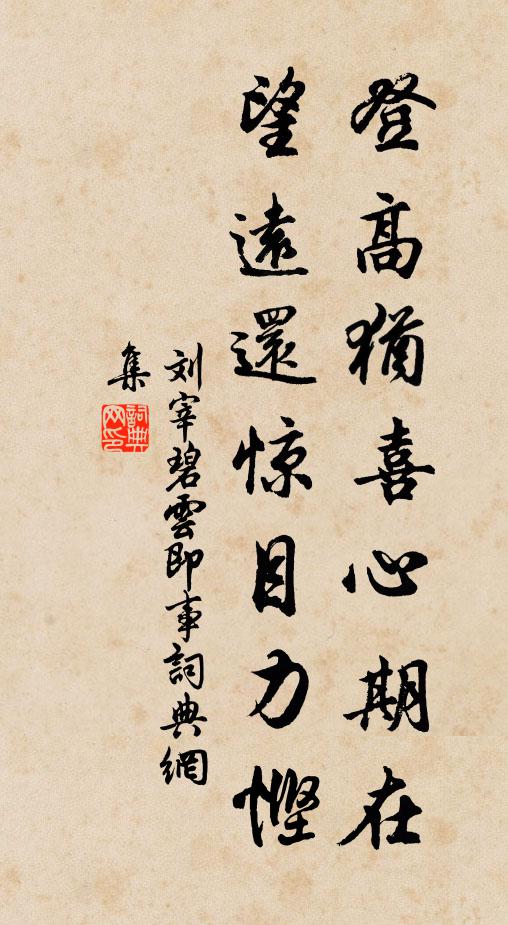 登高猶喜心期在
望遠還惊目力慳
刘宰碧雲即事詞典網
集
詞典
网印